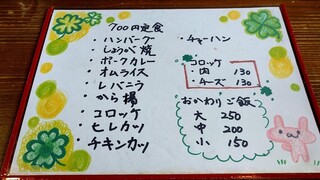 700円定食
・ハンバーグ
・しょうが焼
・ポークカレー
・オムライス
・レバニラ
・から揚
・コロッケ
・ヒレカツ
・チキンカツ
・チャーハン
コロッケ
・肉 130
・チーズ 130
おかわりご飯
大 250
中 200
小 150